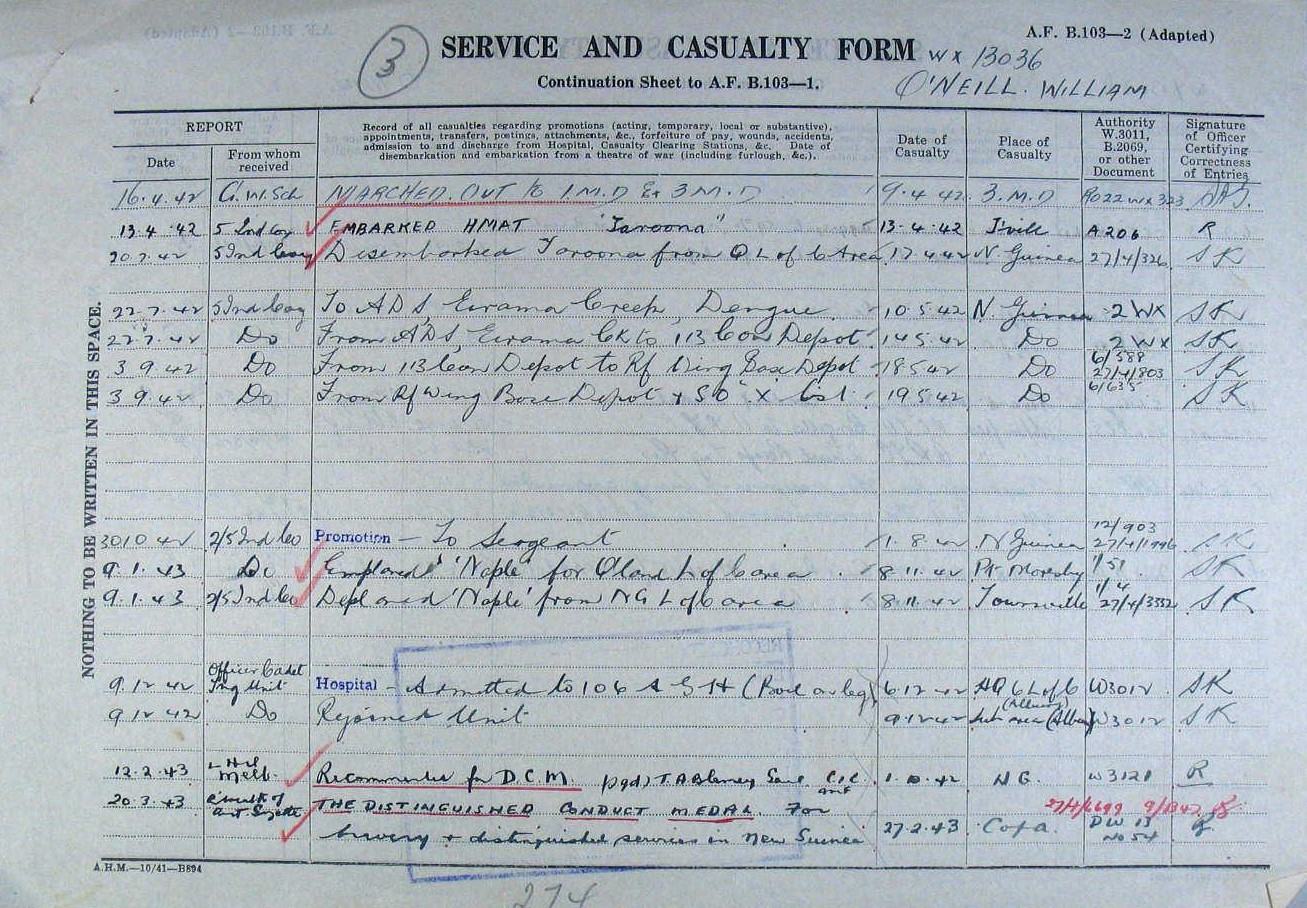 A.F. B.103—2 (Adapted)
3
SERVICE AND CASUALTY FORM WX 13036
Continuation Sheet to A.F. B.103—1. O'NEILL. WILLIAM
REPORT
Date
From whom received
Record of all casualties regarding promotions (acting, temporary, local or substantive),
appointments, transfers, postings, attachments, &c., forfeiture of pay, wounds, accidents,
admission to and discharge from Hospital, Casualty Clearing Stations, &c. Date of
disembarkation and embarkation from a theatre of war (including furlough, &c.).
Date of Casualty
Place of Casualty
Authority W.3011, B.2069, or other Document
Signature of Officer Certifying Correctness of Entries
16.4.42 G.W.Sch MARCHED OUT to 1 M.D Ex 3 M.D 9.4.42 3.M.D
13.4.42 5 Ind Coy EMBARKED HMAT "Taroona" 13.4.42 T'ville A206 R
20.7.42 5 Ind Coy Disembarked Taroona from Q L of C Area 17.4.42 N Guinea 27/4/326 SK
22.7.42 5 Ind Coy To ADS, Eirama Creek, Dengue 10.5.42 N. Guinea 2 WX SK
22.7.42 Do From ADS, Eirama Ck to 113 Con Depot 14.5.42 Do 2 WX SK
3 9 42 Do From 113 Con Depot to Rf Wing Base Depot 18.5.42 Do 6/388 27/4/803 SK
3 9.42 Do From Rf Wing Base Depot & SO "X" List 19.5.42 Do 6/635 SK
30 10 42 2/5 Ind Co Promotion — To Sergeant 1.8.42 N Guinea 12/903 27/4/1996 SK
9.1.43 Do Emplaned 'Nople' for Qland L of C area 8.11.42 Pt Moresby 1/51 SK
9.1.43 2/5 Ind Co Deplaned 'Nople' from NG L of C area 8.11.42 Townsville 1/4 27/4/3352 SK
9.12.42 Officer Cadet Trng Unit Hospital — Admitted to 106 A G H (Boil on leg) 6.12.42 HQ 6 L of C W3012 SK
9.12.42 Do Rejoined Unit 9.12.42 sub area (Albury) W3012 SK
12.2.43 LHQ Melb. Recommended for D.C.M. (sgd) T.A Blamey Genl C.I.C. AMF 1.10.42 N G. W3121 R
20.3.43 C'wealth of Aust Gazette THE DISTINGUISHED CONDUCT MEDAL. For
bravery & distinguished services in New Guinea 27.2.43 DW 13 No 54
NOTHING TO BE WRITTEN IN THIS SPACE.
A.H.M.—10/41—B894
274